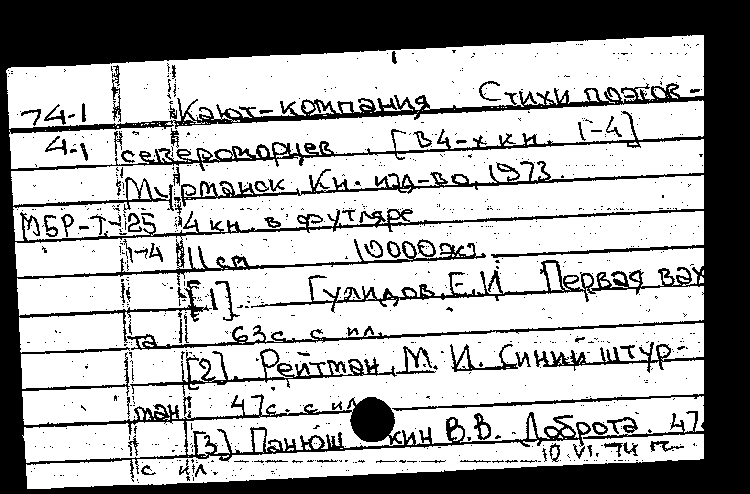 74-1 Кают-компания. Стихи поэтов-
4-1 североморцев. [В 4-х кн. 1-4]
Мурманск, Кн. изд-во, 1973.
МБР-Т-25 4 кн. в футляре
1-4 11 см 10000 экз.
[1]. Гулидов, Е.И. Первая вах
та 63 с. с ил.
[2]. Рейтман, М. И. Синий штур-
ман 47 с. с ил.
[3]. Панюшкин В.В. Доброта. 47
с ил. 10.VI.74 г.